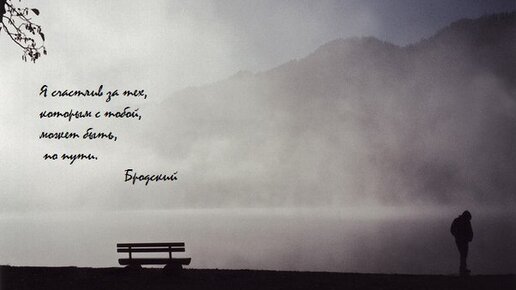 Я счастлив за тех,
которым с тобой,
может быть,
по пути.
Бродский